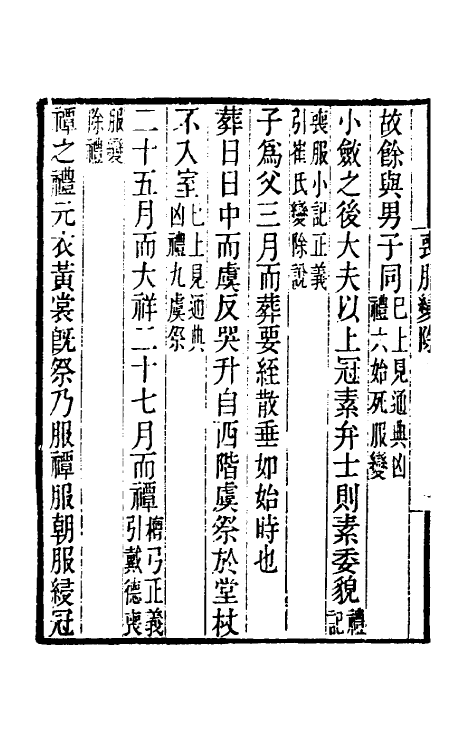 喪服變除　一
故餘與男子同已上見通典凶禮六始死服變
小斂之後大夫以上冠素弁士則素委貌禮記
喪服小記正義引崔氏變除說
子爲父三月而葬要絰散垂如始時也
葬日日中而虞反哭升自西階虞祭於堂杖
不入室已上見通典凶禮九虞祭
二十五月而大祥二十七月而禫檀弓正義引戴德喪
服變除禮
禫之禮元衣黃裳旣祭乃服禫服朝服綅冠